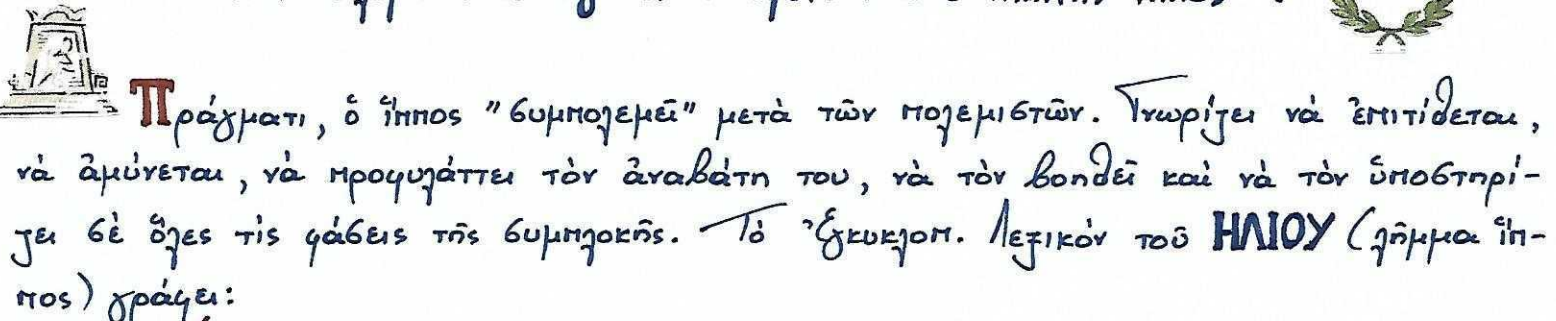 Πράγματι, ὁ ἵππος "συμπολεμεῖ" μετὰ τῶν πολεμιστῶν. Γνωρίζει νὰ ἐπιτίθεται,
νὰ ἀμύνεται, νὰ προφυλάττει τὸν ἀναβάτη του, νὰ τὸν βοηθεῖ καὶ νὰ τὸν ὑποστηρί-
ζει σὲ ὅλες τὶς φάσεις τῆς συμπλοκῆς. Τὸ Ἐγκυκλοπ. Λεξικόν τοῦ ΗΛΙΟΥ (λῆμμα ἵπ-
πος) γράφει: